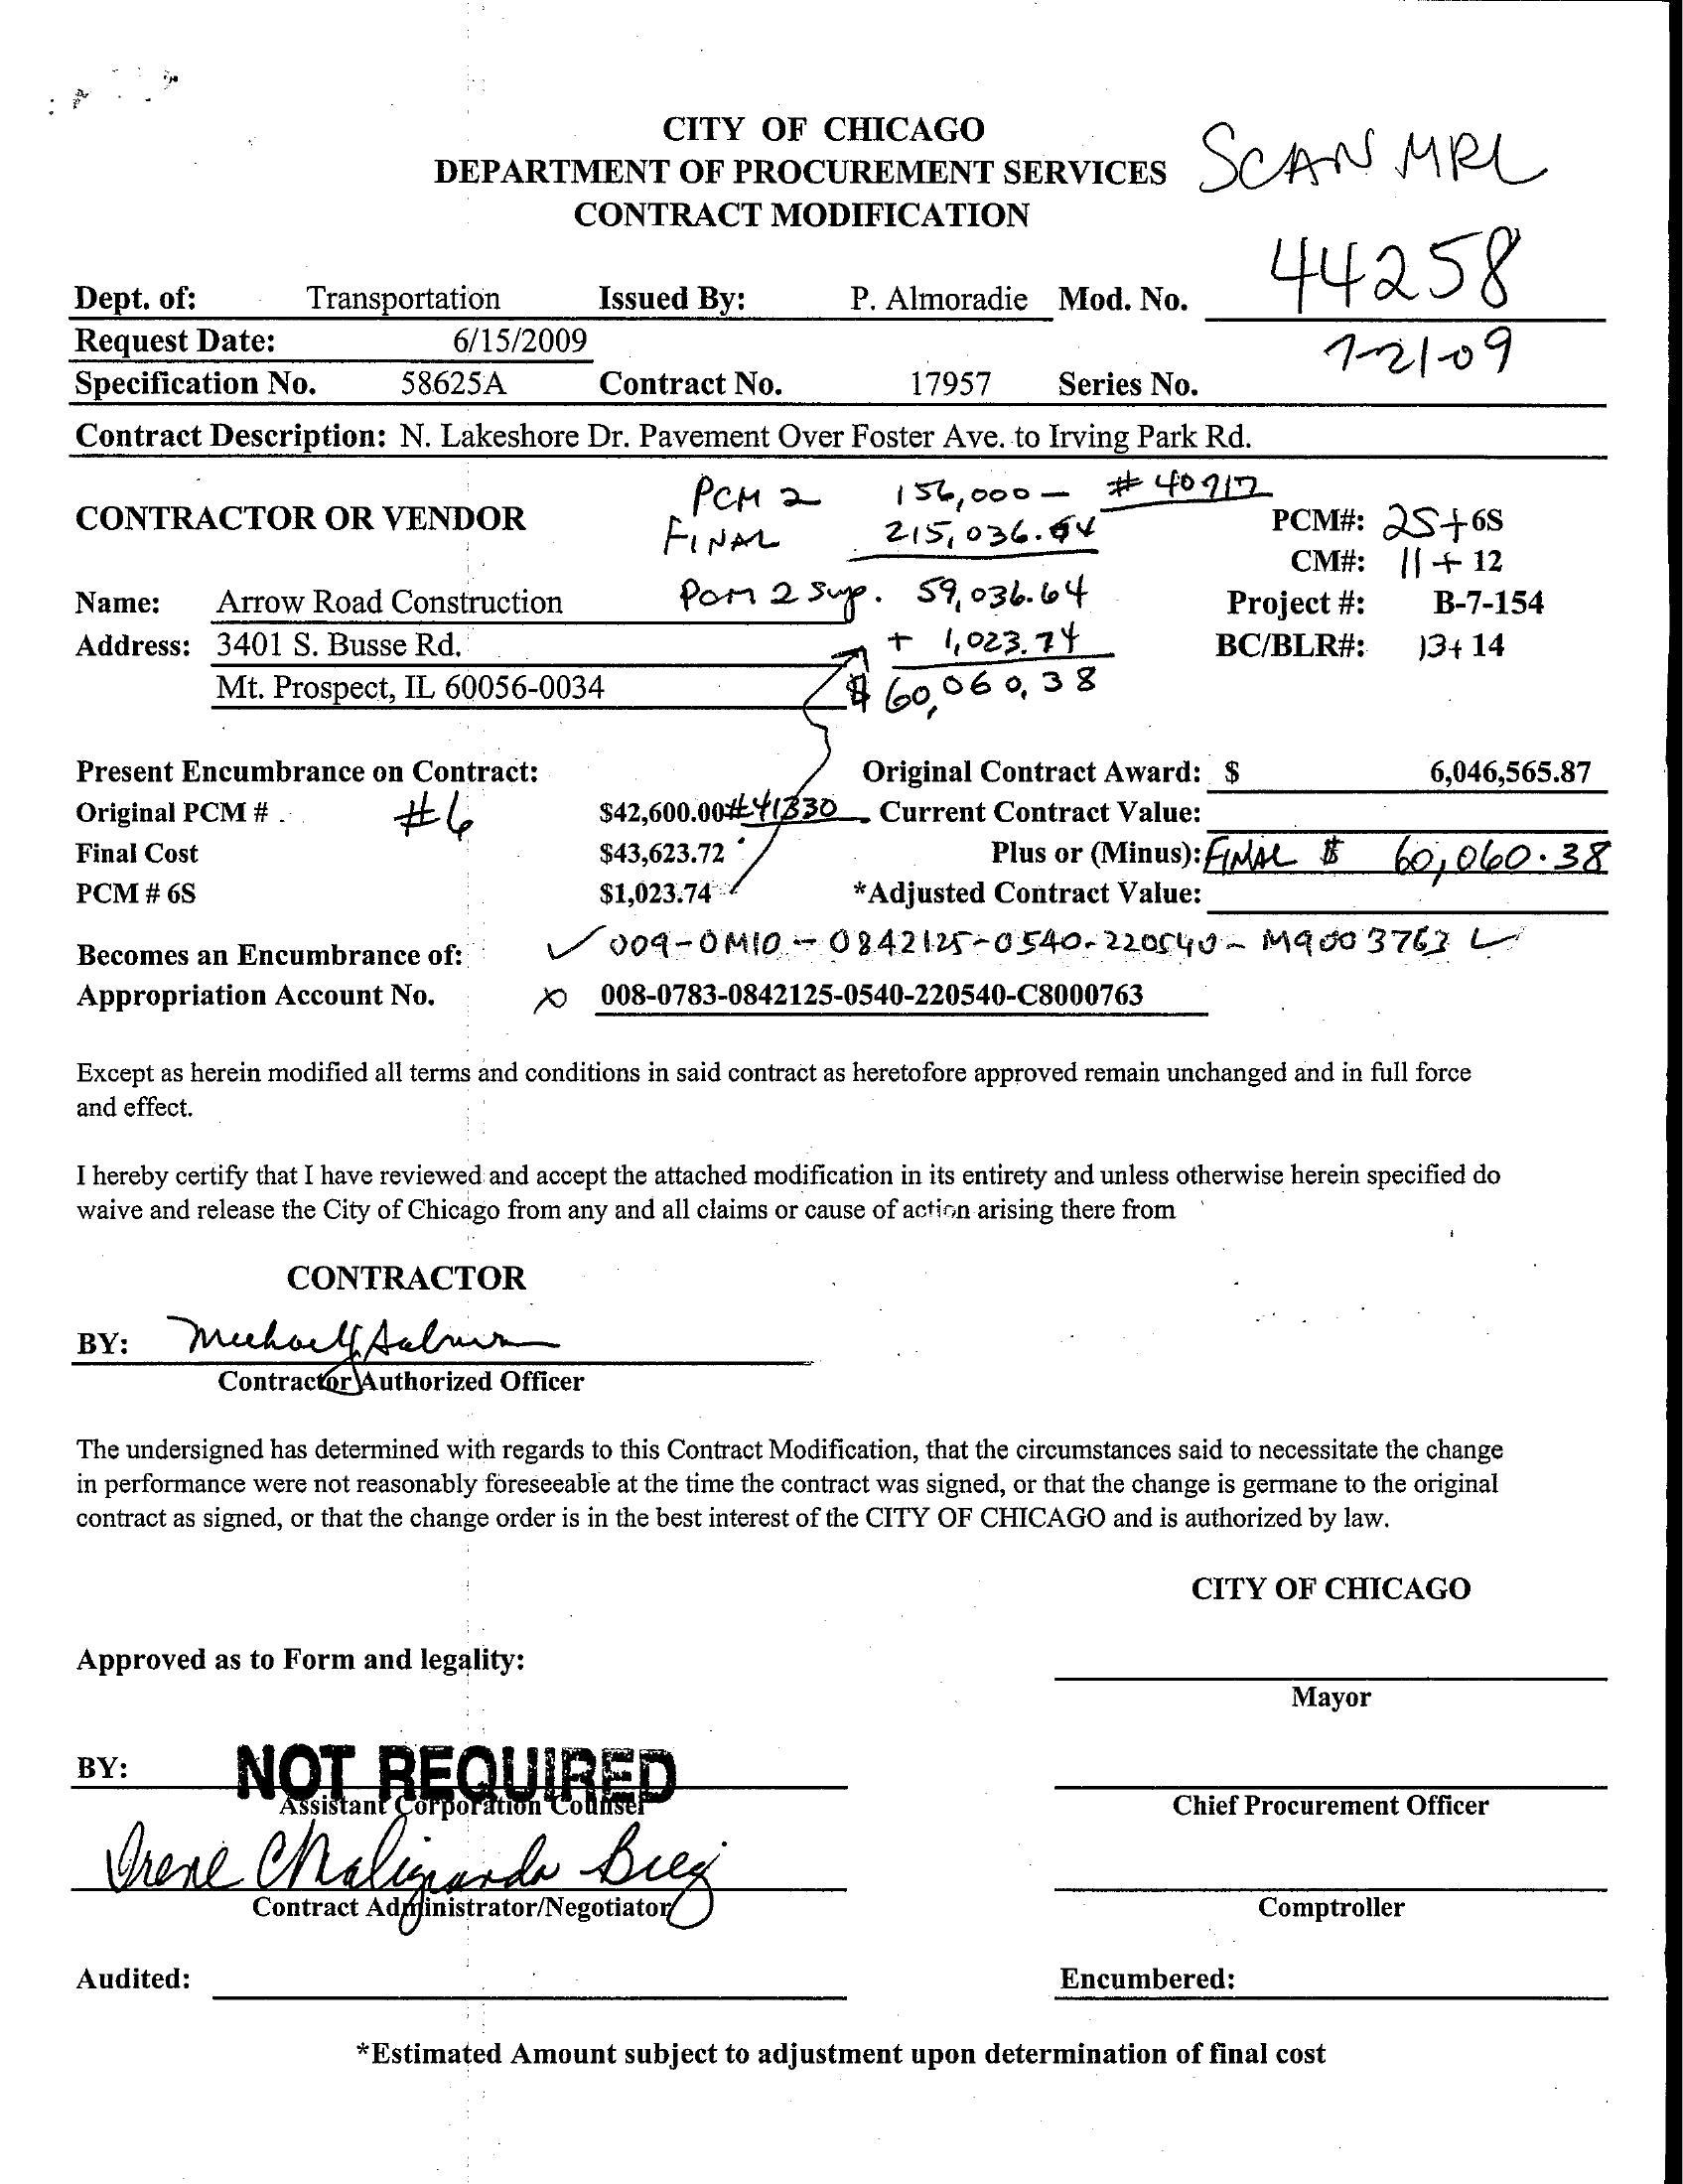 CITY OF CHICAGO
DEPARTMENT OF PROCUREMENT SERVICES
CONTRACT MODIFICATION
SCAN MRL
Dept. of: Transportation Issued By: P. Almoradie Mod. No. 44258
Request Date: 6/15/2009 7-21-09
Specification No. 58625A Contract No. 17957 Series No.
Contract Description: N. Lakeshore Dr. Pavement Over Foster Ave. to Irving Park Rd.
PCM 2 156,000 - # 40717
CONTRACTOR OR VENDOR FINAL 215,036.64 PCM#: 2S+6S
CM#: 11 + 12
Name: Arrow Road Construction PCM 2 sup. 59,036.64 Project #: B-7-154
Address: 3401 S. Busse Rd. + 1,023.74 BC/BLR#: 13+14
Mt. Prospect, IL 60056-0034 $ 60,060.38
Present Encumbrance on Contract: Original Contract Award: $ 6,046,565.87
Original PCM # #6 $42,600.00 #41330 Current Contract Value:
Final Cost $43,623.72 Plus or (Minus): FINAL $ 60,060.38
PCM # 6S $1,023.74 *Adjusted Contract Value:
Becomes an Encumbrance of: 009-0M10-0842125-0540-220540-M9003763
Appropriation Account No. 008-0783-0842125-0540-220540-C8000763
Except as herein modified all terms and conditions in said contract as heretofore approved remain unchanged and in full force
and effect.
I hereby certify that I have reviewed and accept the attached modification in its entirety and unless otherwise herein specified do
waive and release the City of Chicago from any and all claims or cause of action arising there from
CONTRACTOR
BY:
Contractor Authorized Officer
The undersigned has determined with regards to this Contract Modification, that the circumstances said to necessitate the change
in performance were not reasonably foreseeable at the time the contract was signed, or that the change is germane to the original
contract as signed, or that the change order is in the best interest of the CITY OF CHICAGO and is authorized by law.
CITY OF CHICAGO
Approved as to Form and legality:
Mayor
BY: NOT REQUIRED
Assistant Corporation Counsel Chief Procurement Officer
Irene
Contract Administrator/Negotiator Comptroller
Audited: Encumbered:
*Estimated Amount subject to adjustment upon determination of final cost